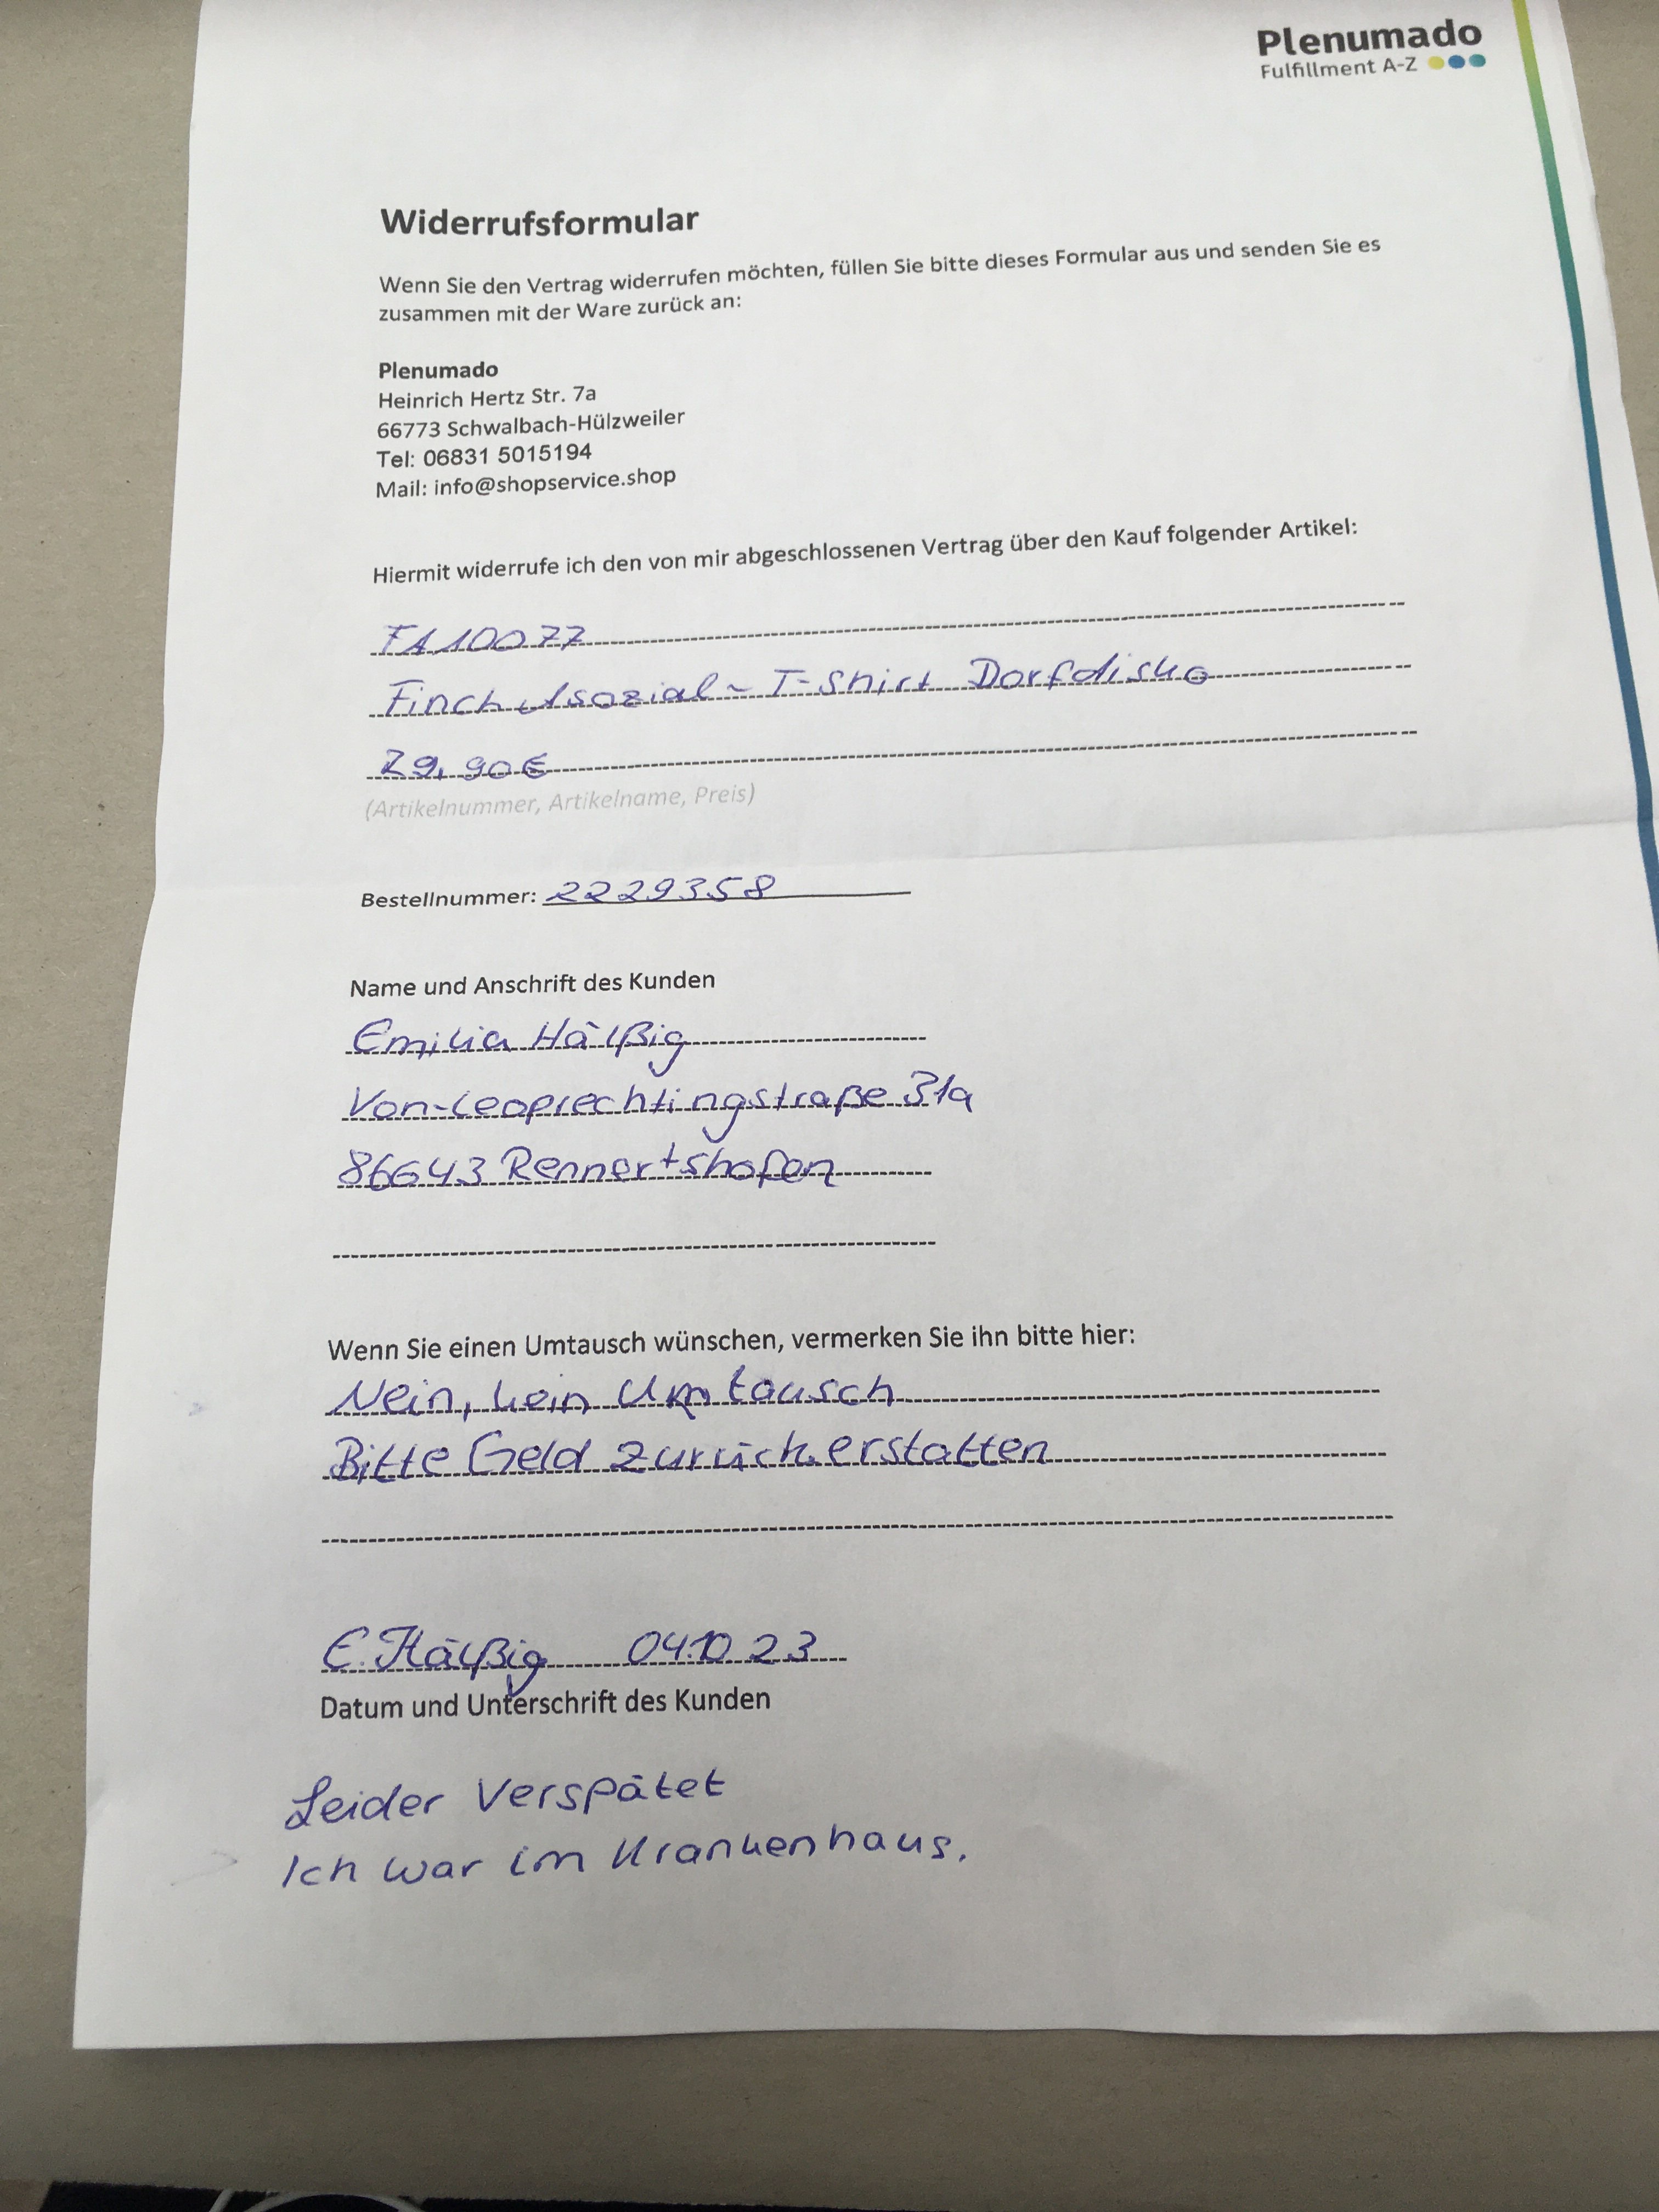 Plenumado
Fulfillment A-Z
Widerrufsformular
Wenn Sie den Vertrag widerrufen möchten, füllen Sie bitte dieses Formular aus und senden Sie es
zusammen mit der Ware zurück an:
Plenumado
Heinrich Hertz Str. 7a
66773 Schwalbach-Hülzweiler
Tel: 06831 5015194
Mail: info@shopservice.shop
Hiermit widerrufe ich den von mir abgeschlossenen Vertrag über den Kauf folgender Artikel:
FA10077
Finch Asozial - T-Shirt Dorfdisko
29,90€
(Artikelnummer, Artikelname, Preis)
Bestellnummer: 2229358
Name und Anschrift des Kunden
Emilia Hälßig
Von-Leoprechtingstraße 31a
86643 Rennertshofen
Wenn Sie einen Umtausch wünschen, vermerken Sie ihn bitte hier:
Nein, kein Umtausch
Bitte Geld zurückerstatten
E. Hälßig 04.10.23
Datum und Unterschrift des Kunden
Leider Verspätet
Ich war im Krankenhaus.